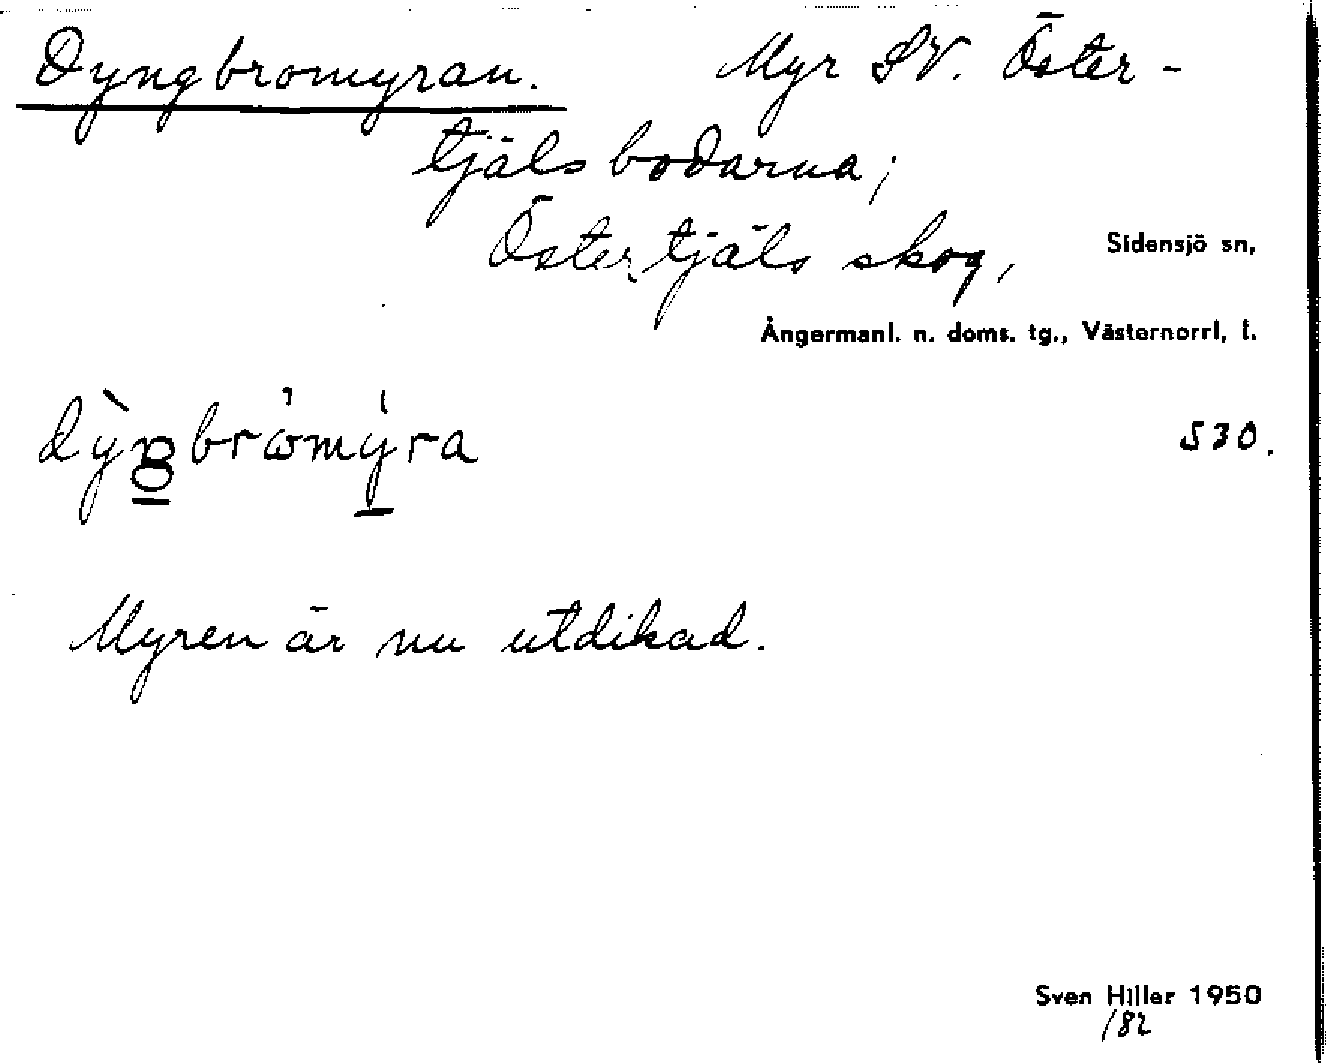 Dyngbromyran. Myr SV. Öster-
tjäls bodarna;
Östertjäls skog, Sidensjö sn,
Ångermanl. n. doms. tg., Västernorrl. l.
dỳngbròmýra 530.
Myren är nu utdikad.
Sven Hiller 1950
/82